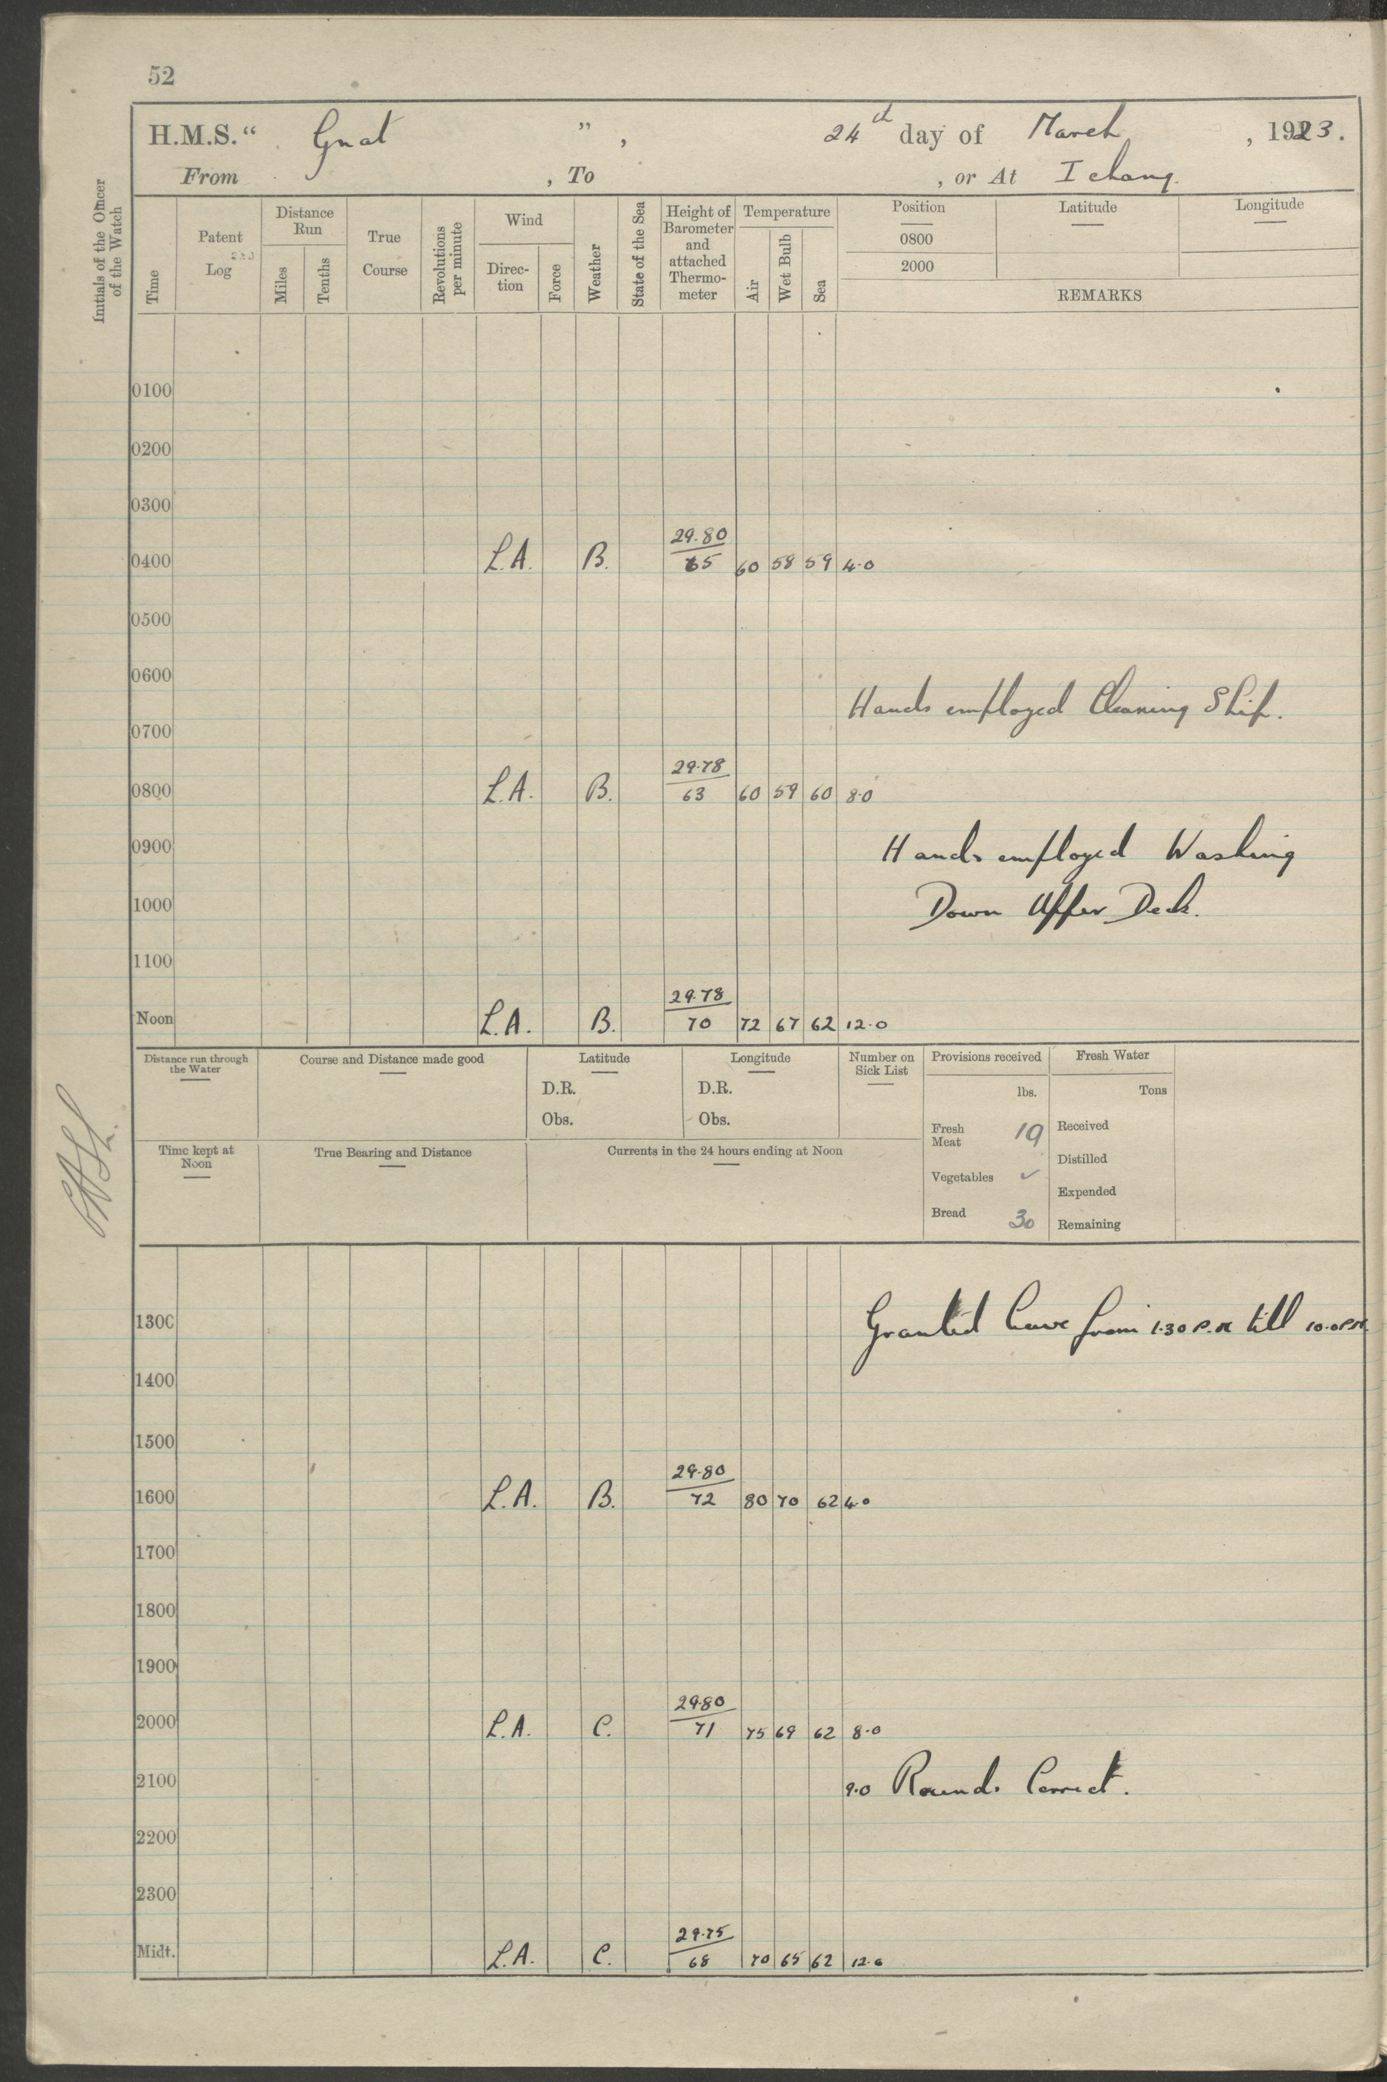 52
H.M.S. " Gnat ", 24th day of March, 1923.
From , To , or At Ichang.
Initials of the Officer of the Watch
Time
Patent Log
Distance Run
Miles
Tenths
True Course
Revolutions per minute
Wind
Direc-tion
Force
Weather
State of the Sea
Height of Barometer and attached Thermo-meter
Temperature
Air
Wet Bulb
Sea
Position Latitude Longitude
0800
2000
REMARKS
0100
0200
0300
29.80
0400 L.A. B. 65 60 58 59 4.0
0500
0600
Hands employed Cleaning Ship.
0700
29.78
0800 L.A. B. 63 60 59 60 8.0
0900 Hands employed Washing
1000 Down Upper Deck.
1100
29.78
Noon L.A. B. 70 72 67 62 12.0
Distance run through the Water
Course and Distance made good
Latitude
D.R.
Obs.
Longitude
D.R.
Obs.
Number on Sick List
Provisions received
lbs.
Fresh Meat 19
Vegetables ✓
Bread 30
Fresh Water
Tons
Received
Distilled
Expended
Remaining
Time kept at Noon
True Bearing and Distance
Currents in the 24 hours ending at Noon
1300 Granted leave from 1.30 P.M. till 10.0 P.M.
1400
1500
29.80
1600 L.A. B. 72 80 70 62 4.0
1700
1800
1900
29.80
2000 L.A. C. 71 75 69 62 8.0
2100 9.0 Rounds Correct.
2200
2300
29.75
Midt. L.A. C. 68 70 65 62 12.0